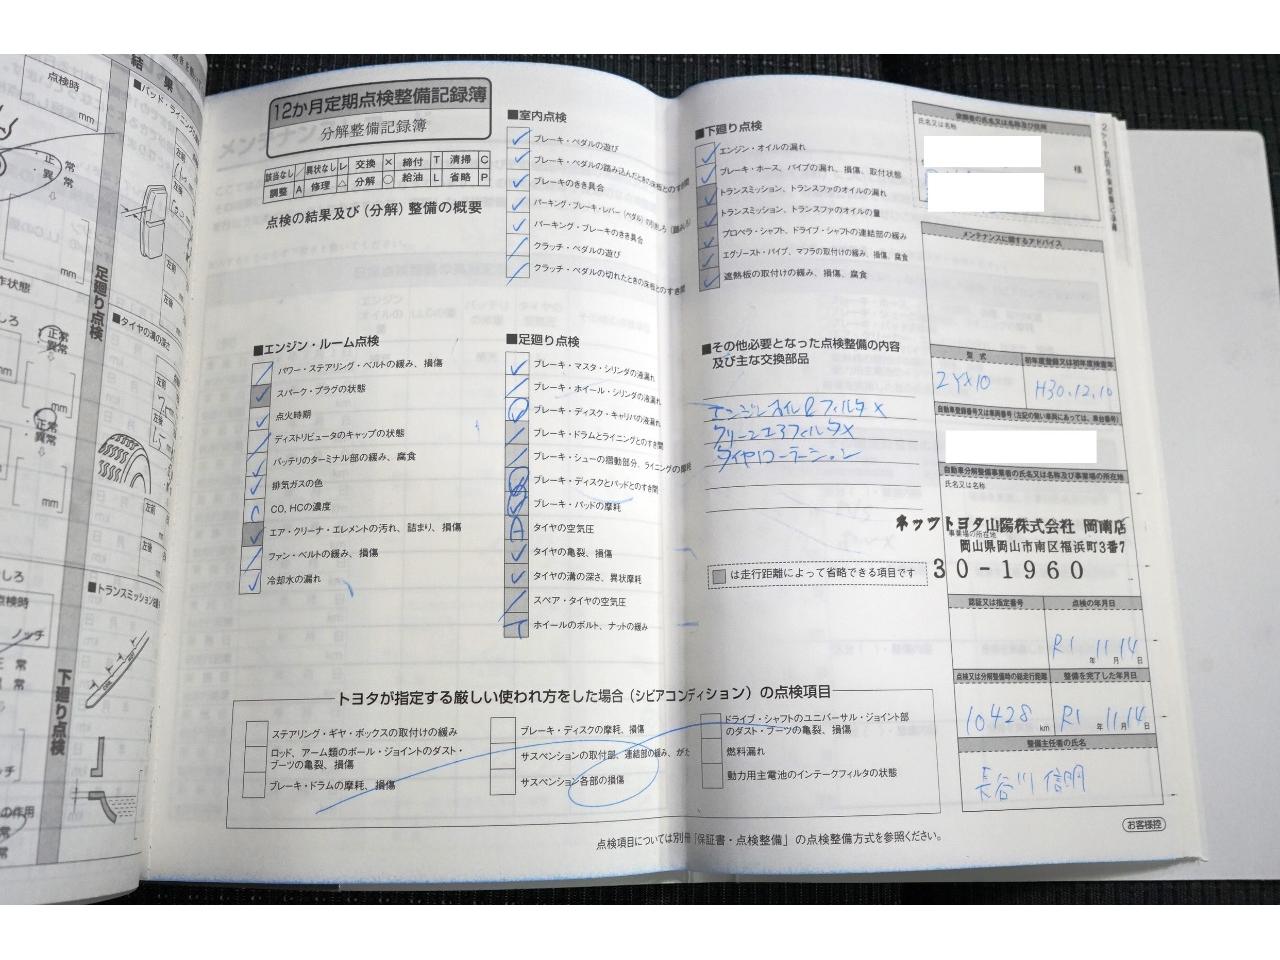 結果
点検時
mm
正常
異常
足廻り点検
■タイヤの溝の深さ
■トランスミッション
下廻り点検
12か月定期点検整備記録簿
分解整備記録簿
該当なし / 異状なし レ 交換 × 締付 T 清掃 C
調整 A 修理 △ 分解 ○ 給油 L 省略 P
点検の結果及び(分解)整備の概要
■エンジン・ルーム点検
パワー・ステアリング・ベルトの緩み、損傷
スパーク・プラグの状態
点火時期
ディストリビュータのキャップの状態
バッテリのターミナル部の緩み、腐食
排気ガスの色
CO, HCの濃度
エア・クリーナ・エレメントの汚れ、詰まり、損傷
ファン・ベルトの緩み、損傷
冷却水の漏れ
■室内点検
ブレーキ・ペダルの遊び
ブレーキ・ペダルの踏み込んだときの床板とのすき間
ブレーキのきき具合
パーキング・ブレーキ・レバー(ペダル)の引きしろ(踏みしろ)
パーキング・ブレーキのきき具合
クラッチ・ペダルの遊び
クラッチ・ペダルの切れたときの床板とのすき間
■足廻り点検
ブレーキ・マスタ・シリンダの液漏れ
ブレーキ・ホイール・シリンダの液漏れ
ブレーキ・ディスク・キャリパの液漏れ
ブレーキ・ドラムとライニングとのすき間
ブレーキ・シューの摺動部分、ライニングの摩耗
ブレーキ・ディスクとパッドとのすき間
ブレーキ・パッドの摩耗
タイヤの空気圧
タイヤの亀裂、損傷
タイヤの溝の深さ、異状摩耗
スペア・タイヤの空気圧
ホイールのボルト、ナットの緩み
■下廻り点検
エンジン・オイルの漏れ
ブレーキ・ホース、パイプの漏れ、損傷、取付状態
トランスミッション、トランスファのオイルの漏れ
トランスミッション、トランスファのオイルの量
プロペラ・シャフト、ドライブ・シャフトの連結部の緩み
エグゾースト・パイプ、マフラの取付けの緩み、損傷、腐食
遮熱板の取付けの緩み、損傷、腐食
■その他必要となった点検整備の内容
及び主な交換部品
エンジンオイル&フィルタ×
クリーンエアフィルタ×
タイヤローテーション
は走行距離によって省略できる項目です
依頼者の氏名又は名称及び住所
氏名又は名称
様
メンテナンスに関するアドバイス
型 式
初年度登録又は初年度検査年
ZYX10
H30.12.10
自動車登録番号又は車両番号(左記の無い車両にあっては、車台番号)
自動車分解整備事業者の氏名又は名称及び事業場の所在地
氏名又は名称
ネッツトヨタ山陽株式会社 岡南店
事業場の所在地
岡山県岡山市南区福浜町3番7
30-1960
認証又は指定番号
点検の年月日
R1 年 11 月 14 日
点検又は分解整備時の総走行距離
整備を完了した年月日
10428 km
R1 年 11 月 14 日
整備主任者の氏名
長谷川 信明
トヨタが指定する厳しい使われ方をした場合(シビアコンディション)の点検項目
ステアリング・ギヤ・ボックスの取付けの緩み
ロッド、アーム類のボール・ジョイントのダスト・
ブーツの亀裂、損傷
ブレーキ・ドラムの摩耗、損傷
ブレーキ・ディスクの摩耗、損傷
サスペンションの取付部、連結部の緩み、がた
サスペンション各部の損傷
ドライブ・シャフトのユニバーサル・ジョイント部
のダスト・ブーツの亀裂、損傷
燃料漏れ
動力用主電池のインテークフィルタの状態
点検項目については別冊「保証書・点検整備」の点検整備方式を参照ください。
お客様控